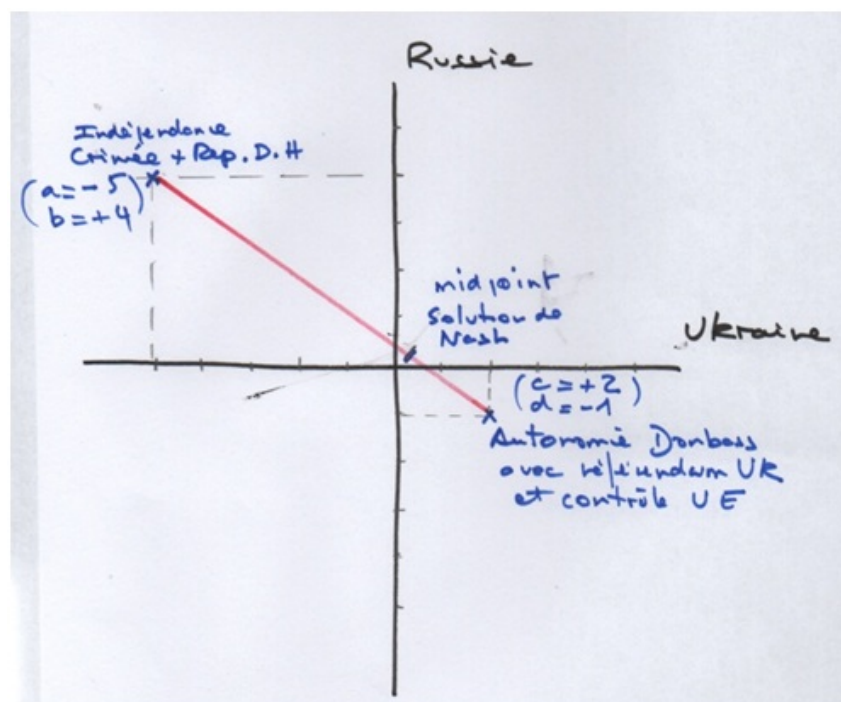 Russie
Indépendance
Crimée + Rep. D.H
(a = -5)
b = +4
midpoint
solution de
Nash
Ukraine
(c = +2)
d = -1
Autonomie Donbass
avec référendum UK
et contrôle UE